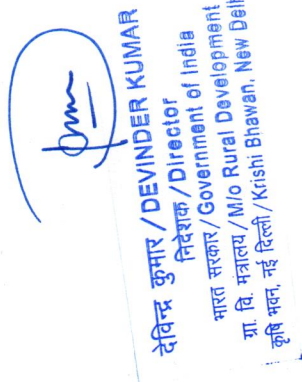 देविन्द्र कुमार / DEVINDER KUMAR
निदेशक / Director
भारत सरकार / Government of India
ग्रा. वि. मंत्रालय / M/o Rural Development
कृषि भवन, नई दिल्ली / Krishi Bhawan, New Delh